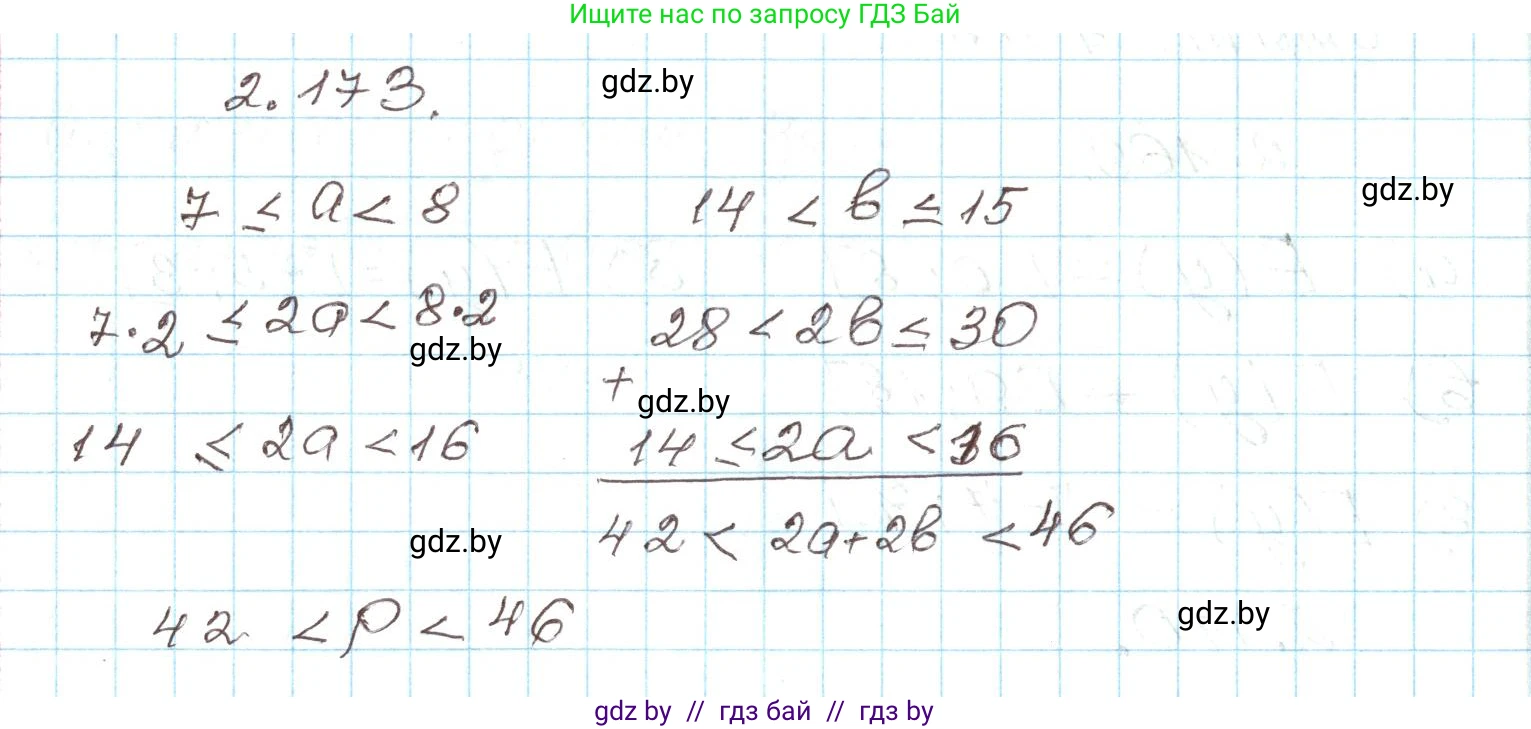 Ищите нас по запросу ГДЗ Бай
2.173.
gdz.by
7 ≤ a < 8
14 < b ≤ 15
gdz.by
7·2 ≤ 2a < 8·2
28 < 2b ≤ 30
gdz.by
+
gdz.by
14 ≤ 2a < 16
14 ≤ 2a < 16
42 < 2a+2b < 46
gdz.by
42 < P < 46
gdz.by
gdz by // гдз бай // гдз by